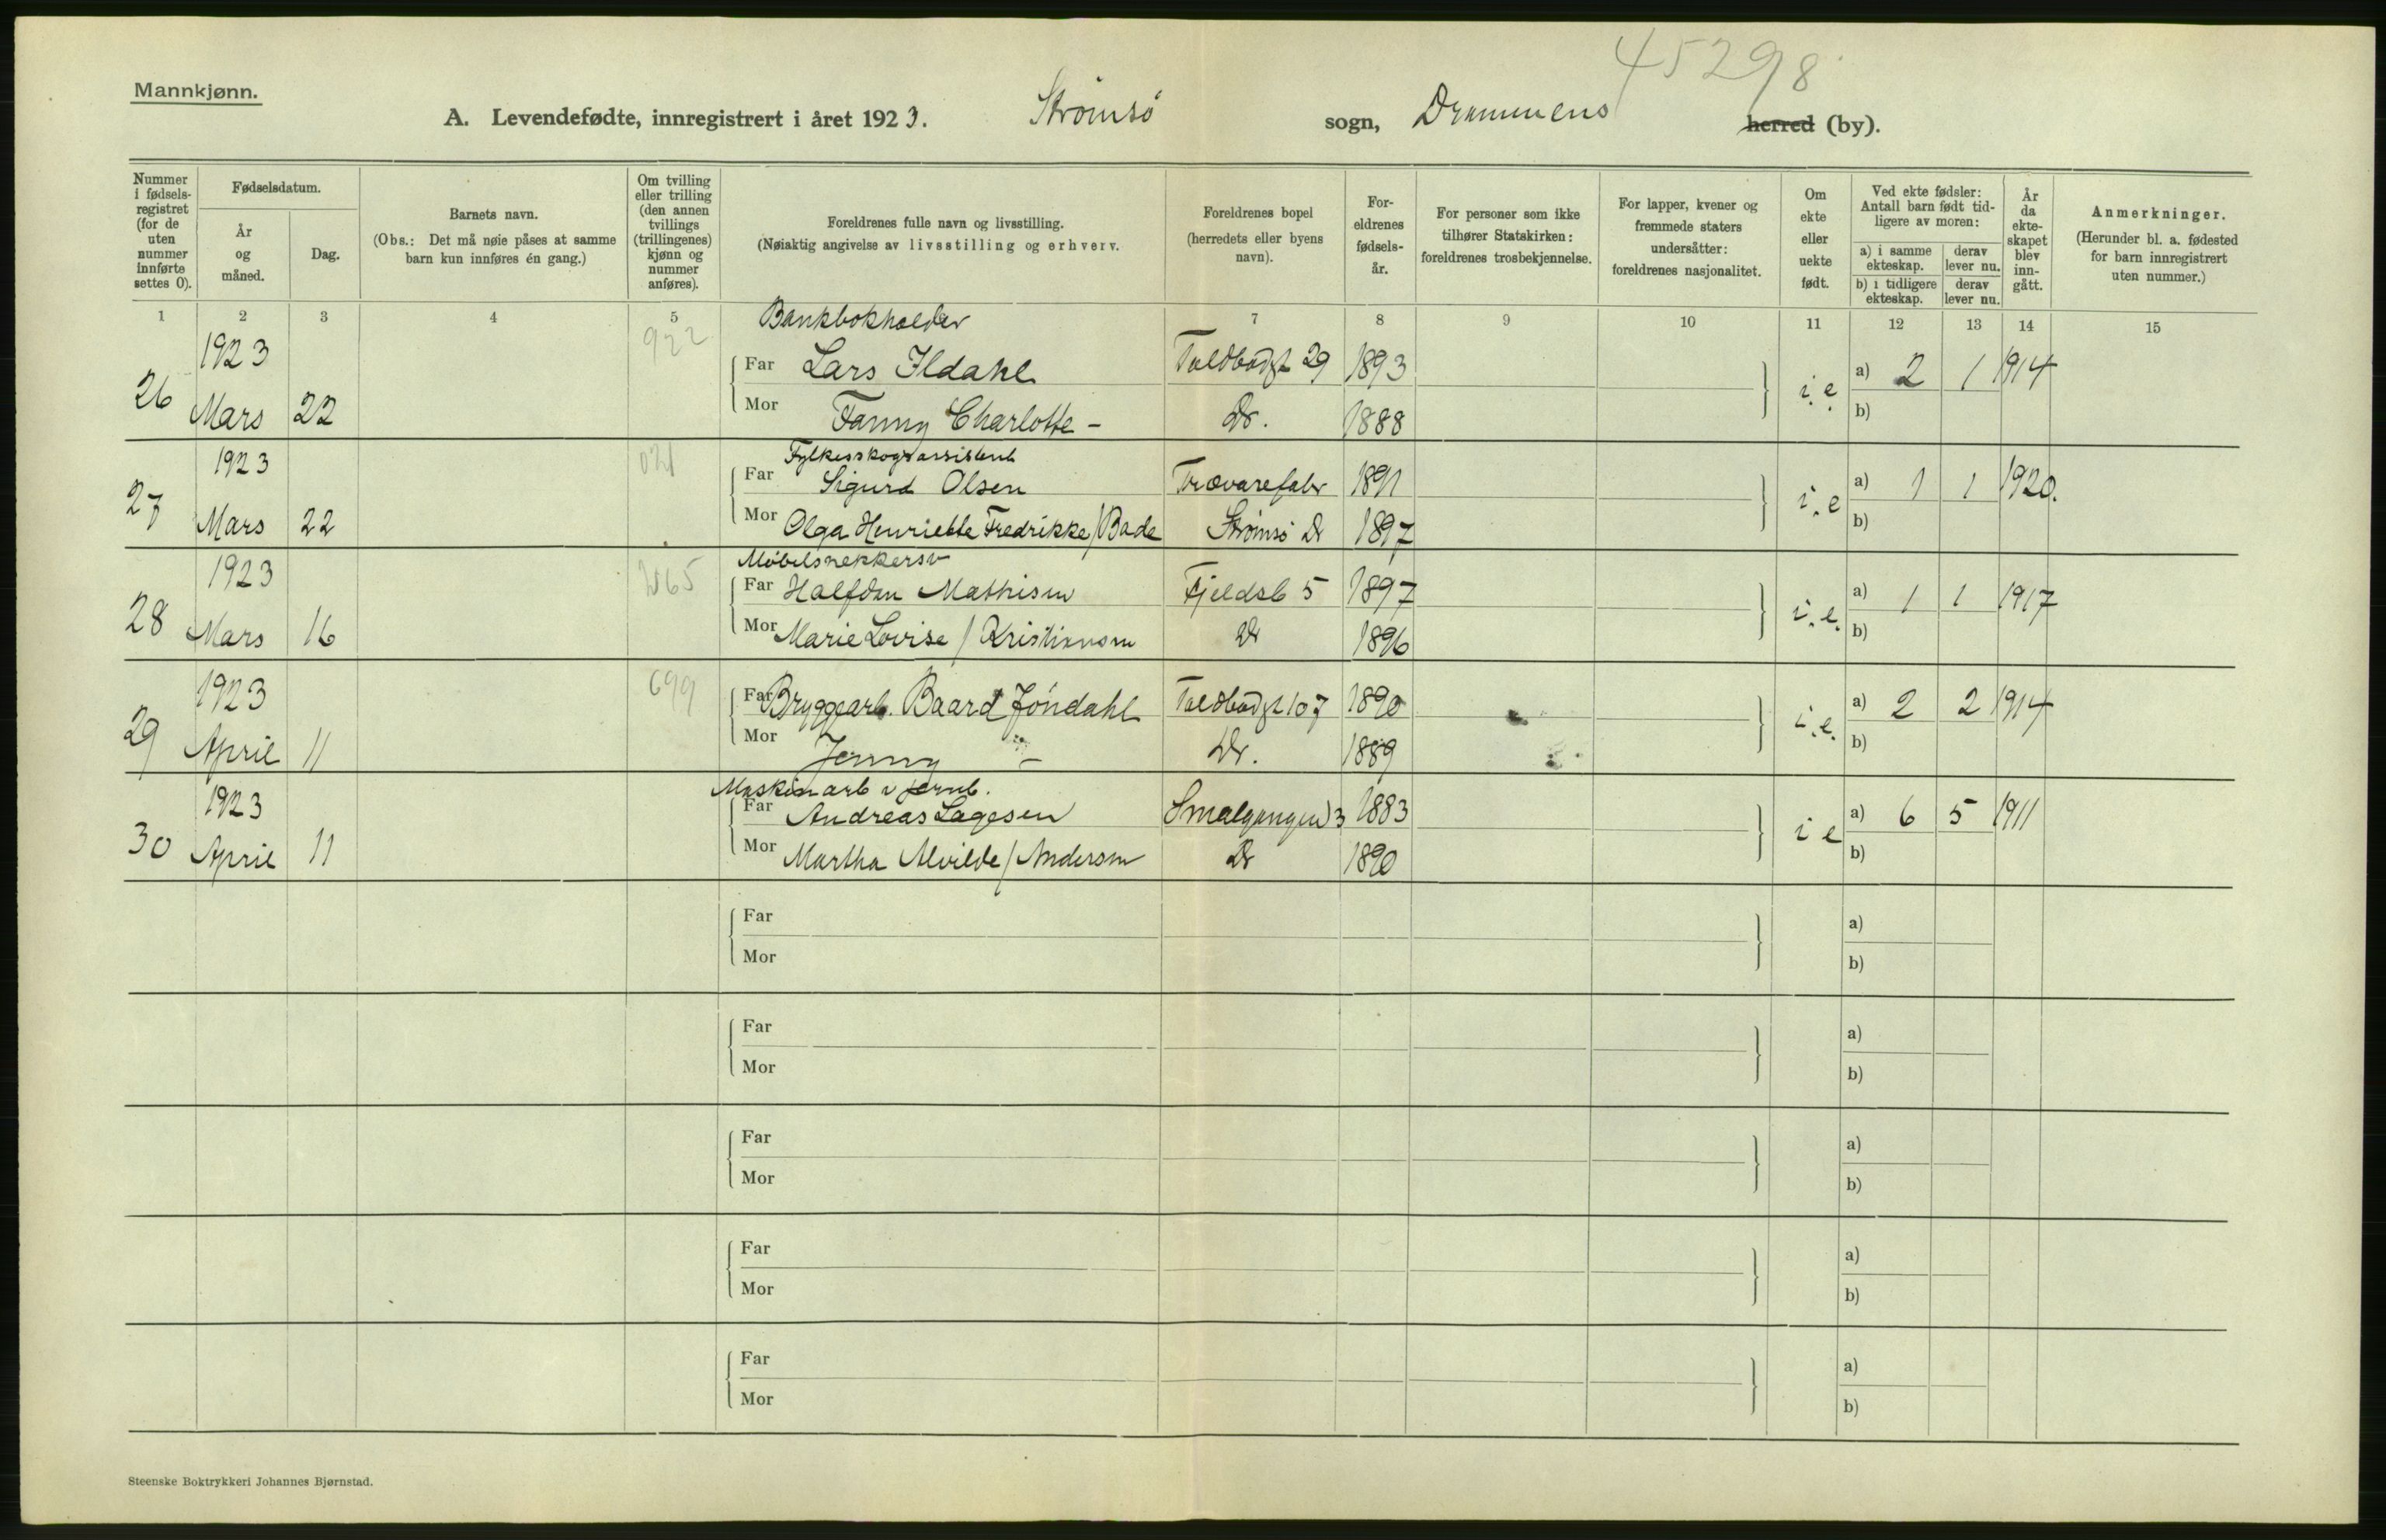 45298
Mannkjønn.
A. Levendefødte, innregistrert i året 1923. Strømsø sogn, Drammens herred (by).
Nummer i fødsels-registret (for de uten nummer innførte settes 0).
Fødselsdatum.
År og måned.
Dag.
Barnets navn.
(Obs.: Det må nøie påses at samme barn kun innføres én gang.)
Om tvilling eller trilling (den annen tvillings (trillingenes) kjønn og nummer anføres).
Foreldrenes fulle navn og livsstilling.
(Nøiaktig angivelse av livsstilling og erhverv.
Foreldrenes bopel (herredets eller byens navn).
For-eldrenes fødsels-år.
For personer som ikke tilhører Statskirken: foreldrenes trosbekjennelse.
For lapper, kvener og fremmede staters undersåtter: foreldrenes nasjonalitet.
Om ekte eller uekte født.
Ved ekte fødsler: Antall barn født tid-ligere av moren:
a) i samme ekteskap.
derav lever nu.
b) i tidligere ekteskap.
derav lever nu.
År da ekte-skapet blev inn-gått.
Anmerkninger.
(Herunder bl. a. fødested for barn innregistrert uten nummer.)
1 2 3 4 5 7 8 9 10 11 12 13 14 15
Bankbokholder
26 1923 Mars 22 922 Far Lars Ildahl Toldbodgt 29 1893 i.e. a) 2 1 1914
Mor Fanny Charlotte - Dr. 1888 b)
Fylkesskogsassistent
27 1923 Mars 22 021 Far Sigurd Olsen Trævarefabr 1891 i.e a) 1 1 1920.
Mor Olga Henriette Fredrikke / Bade Strømsø Dr 1897 b)
Møbelsnekkersv
28 1923 Mars 16 Far Halfdan Mathisen Fjeldsb 5 1897 i.e. a) 1 1 1917
Mor Marie Lovise / Kristiansen Dr 1896 b)
29 1923 April 11 699 Far Bryggearb. Baard Jøndahl Toldbodgt 107 1890 i.e. a) 2 2 1914
Mor Jenny - Dr. 1889 b)
Maskinarb v jernb.
30 1923 April 11 Far Andreas Lagesen Smalgangen 3 1883 i e a) 6 5 1911
Mor Martha Alvilde / Andersen Dr 1890 b)
Far a)
Mor b)
Far a)
Mor b)
Far a)
Mor b)
Far a)
Mor b)
Far a)
Mor b)
Steenske Boktrykkeri Johannes Bjørnstad.